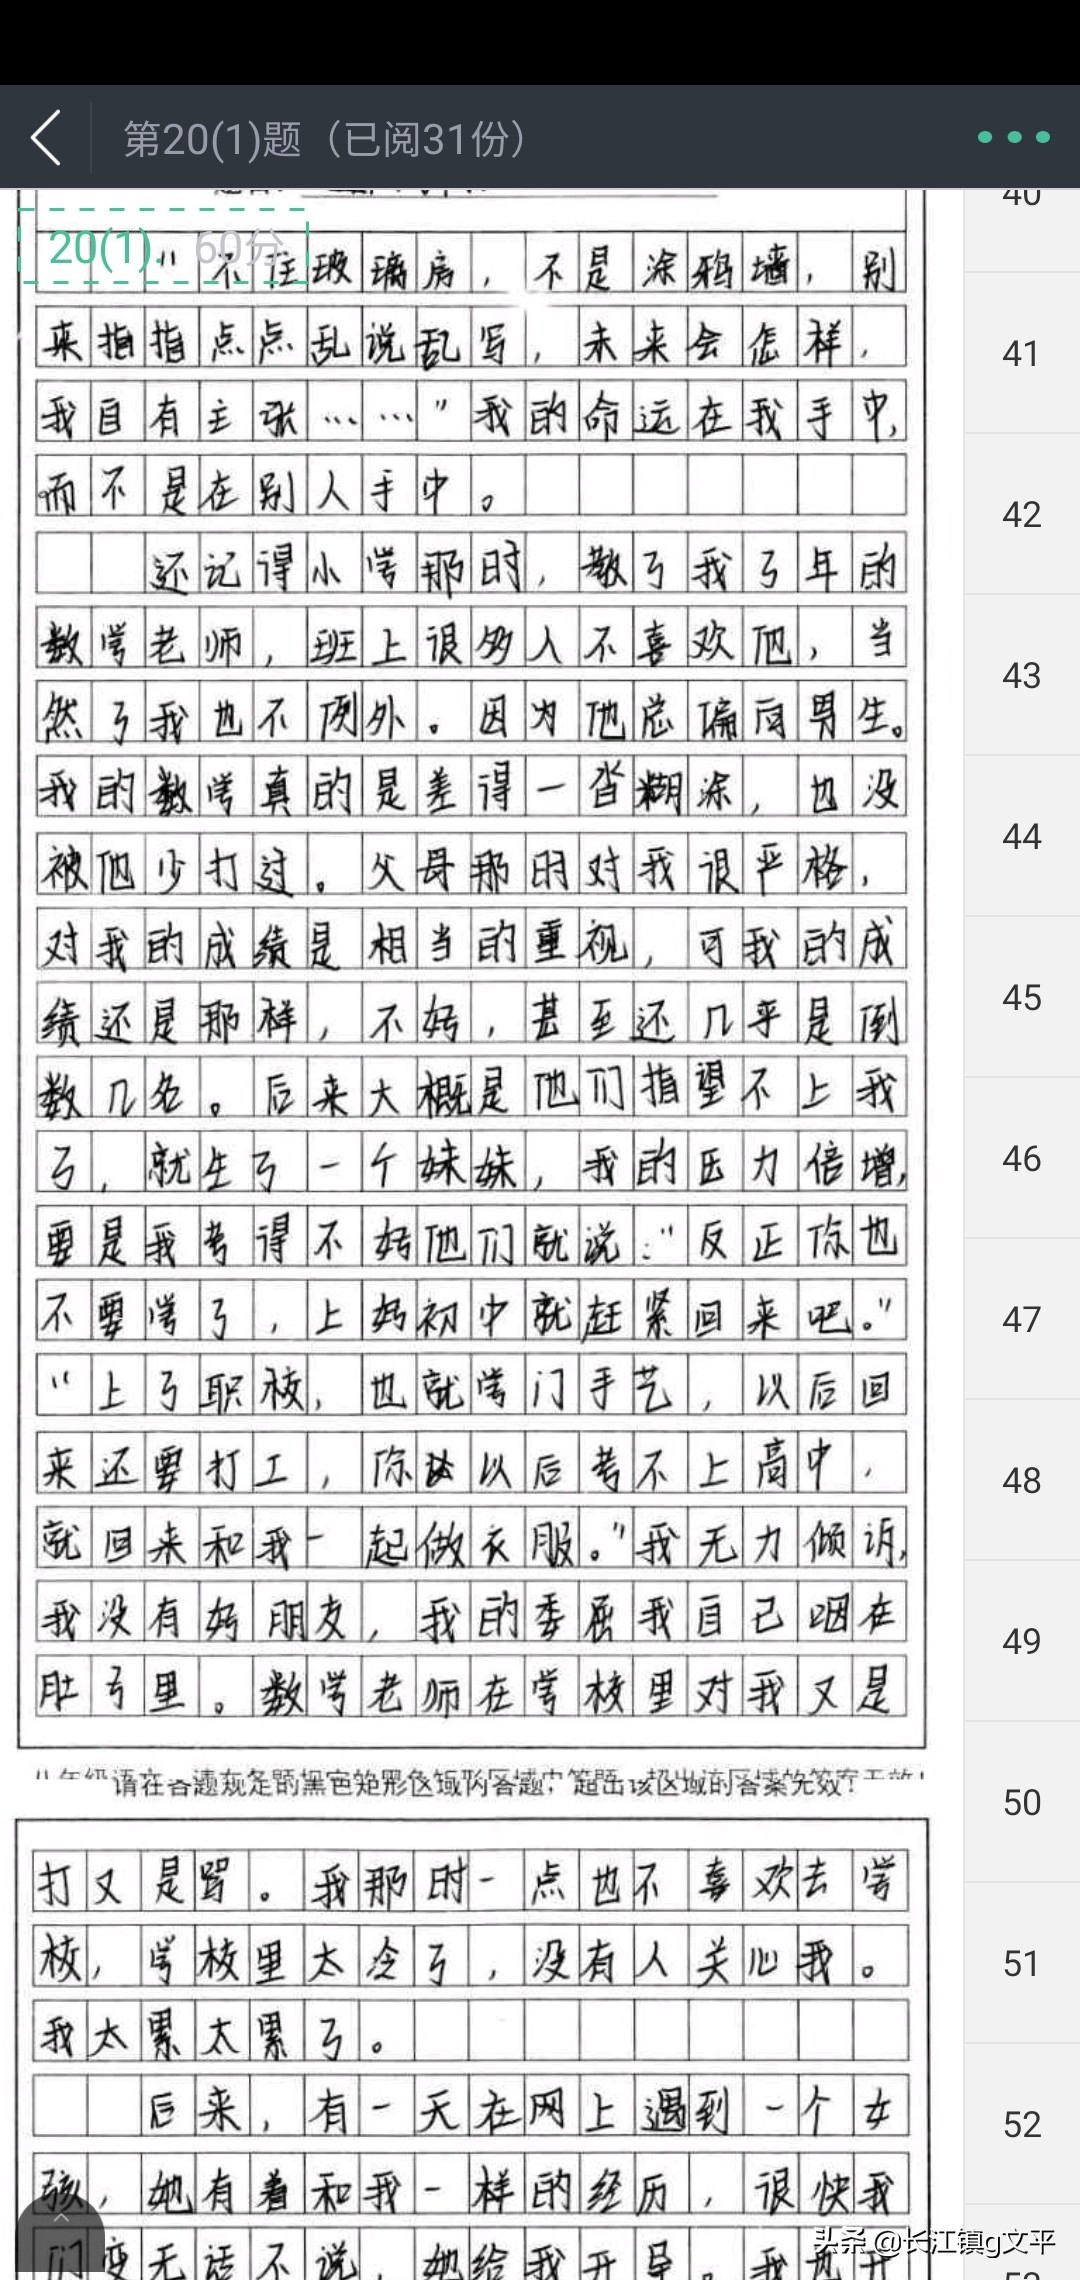 第20(1)题（已阅31份）
20(1). 60分
"不住玻璃房，不是涂鸦墙，别
来指指点点乱说乱写，未来会怎样，
我自有主张……"我的命运在我手中，
而不是在别人手中。
还记得小学那时，教了我了年的
数学老师，班上很多人不喜欢他，当
然了我也不例外。因为他总偏向男生。
我的数学真的是差得一沓糊涂，也没
被他少打过。父母那时对我很严格，
对我的成绩是相当的重视，可我的成
绩还是那样，不好，甚至还几乎是倒
数几名。后来大概是他们指望不上我
了，就生了一个妹妹，我的压力倍增，
要是我考得不好他们就说："反正你也
不要学了，上好初中就赶紧回来吧。"
"上了职校，也就学门手艺，以后回
来还要打工，你以后考不上高中，
就回来和我一起做衣服。"我无力倾诉，
我没有好朋友，我的委屈我自己咽在
肚子里。数学老师在学校里对我又是
请在各题规定的黑色矩形区域内答题，超出该区域的答案无效！
打又是骂。我那时一点也不喜欢去学
校，学校里太冷了，没有人关心我。
我太累太累了。
后来，有一天在网上遇到一个女
孩，她有着和我一样的经历，很快我
们变无话不说，她给我开导。我也开
40
41
42
43
44
45
46
47
48
49
50
51
52
头条 @长江镇g文平